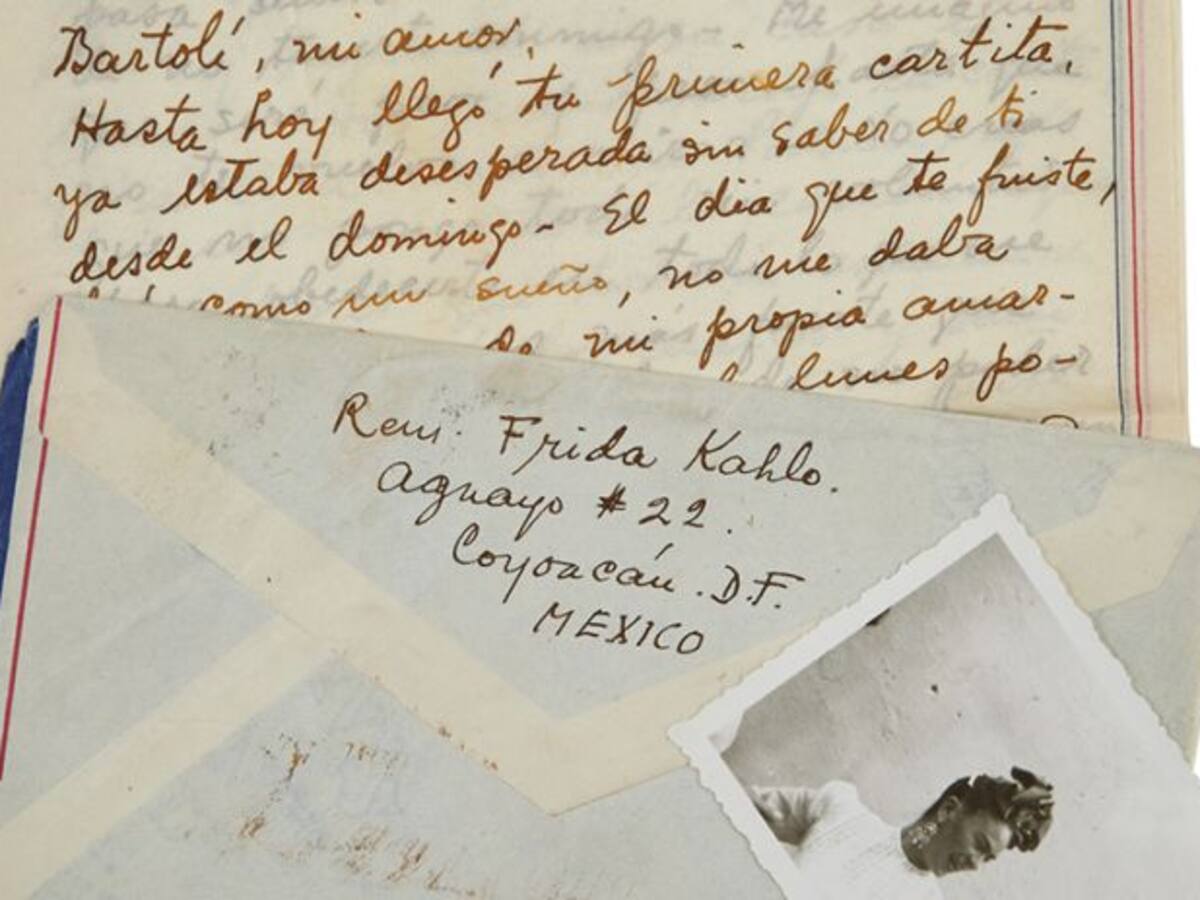 Bartolí, mi amor,
Hasta hoy llegó tu primera cartita,
ya estaba desesperada sin saber de ti
desde el domingo- El dia que te fuiste,
como un sueño, no me daba
de mi propia amar-
lunes po-
Rem. Frida Kahlo.
Aguayo # 22.
Coyoacán. D.F.
MEXICO